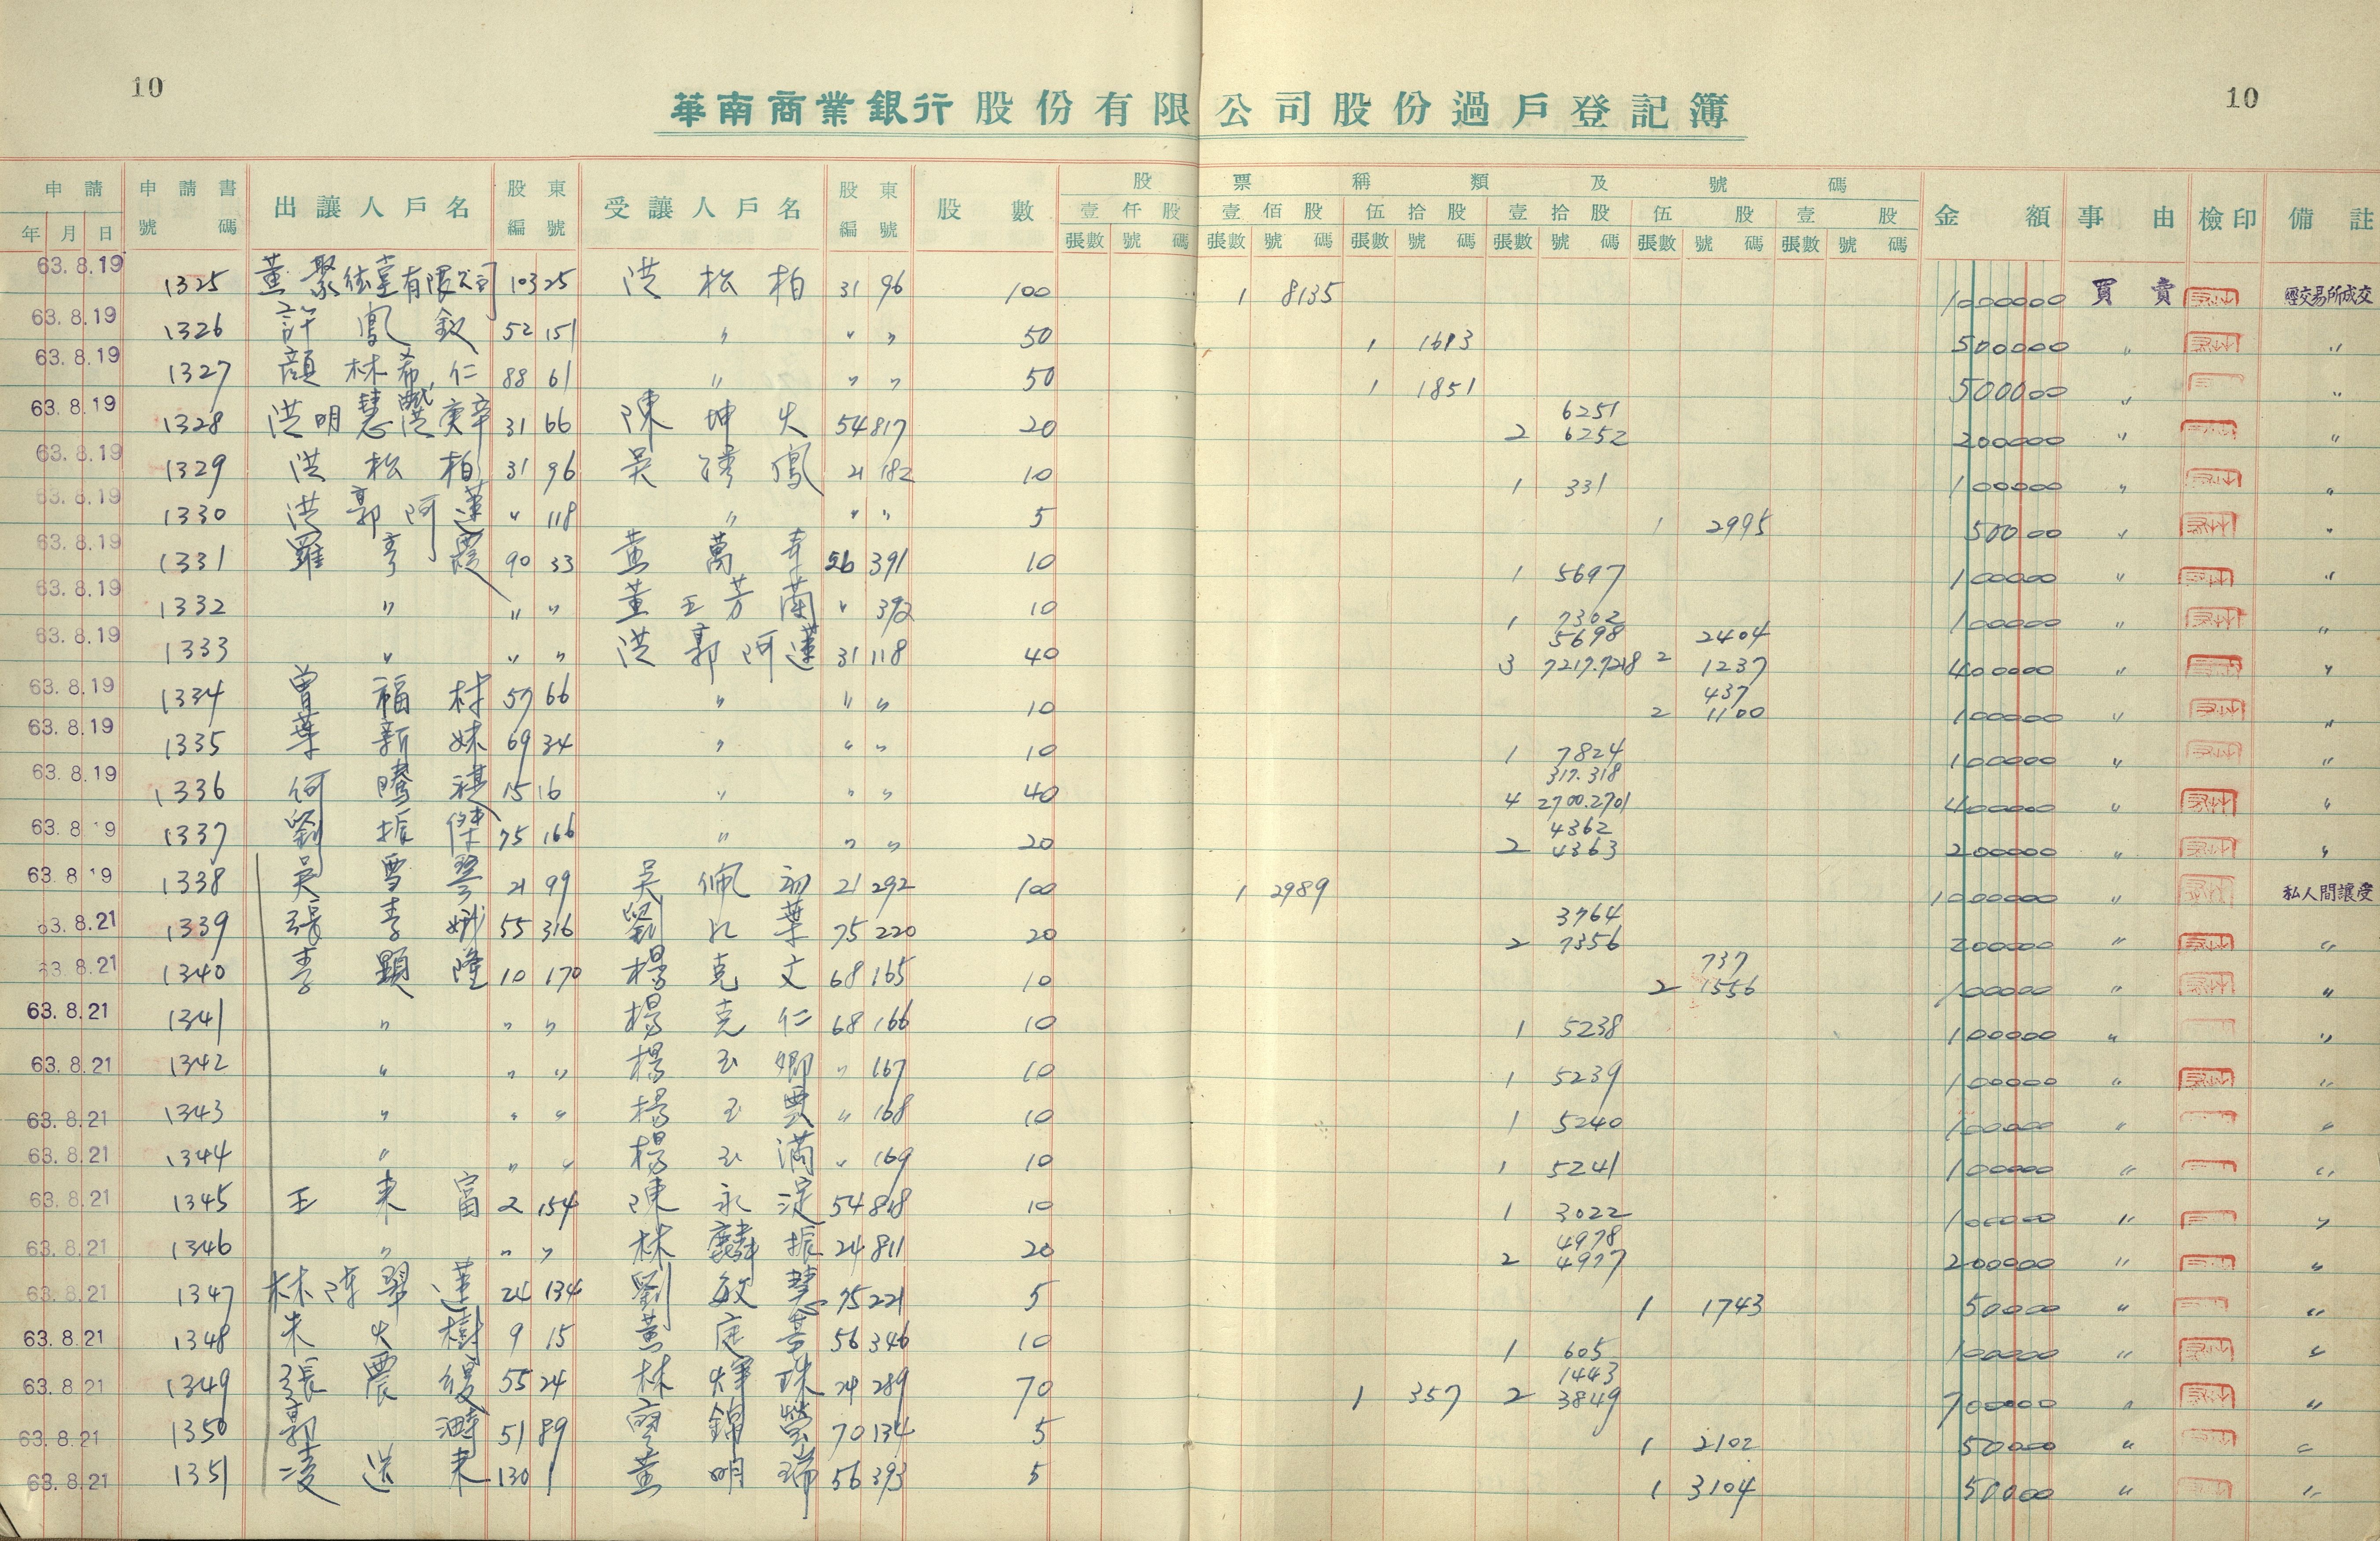 10
華南商業銀行股份有限公司股份過戶登記簿
10
申請 申請書 出讓人戶名 股東 受讓人戶名 股東 股數 股票種類及號碼 金額 事由 檢印 備註
年 月 日 號碼 編號 編號 壹仟股 壹佰股 伍拾股 壹拾股 伍股 壹股
張數 號碼 張數 號碼 張數 號碼 張數 號碼 張數 號碼 張數 號碼
63.8.19 1325 黃聚信堂有限公司 103 25 洪松柏 31 96 100 1 8135 1000000 買賣 經交易所成交
63.8.19 1326 許鳳釵 52 151 〃 〃 〃 50 1 1613 500000 〃 〃
63.8.19 1327 顏林希仁 88 61 〃 〃 〃 50 1 1851 500000 〃 〃
63.8.19 1328 洪明慧 洪庚辛 31 66 陳坤火 54 817 20 2 6251 6252 200000 〃 〃
63.8.19 1329 洪松柏 31 96 吳 鳳 21 182 10 1 331 100000 〃 〃
63.8.19 1330 洪郭阿蓮 〃 118 〃 〃 〃 5 1 2995 50000 〃 〃
63.8.19 1331 羅 霞 90 33 黃萬 56 391 10 1 5697 100000 〃 〃
63.8.19 1332 〃 〃 〃 黃王芳蘭 〃 392 10 1 7302 100000 〃 〃
63.8.19 1333 〃 〃 〃 洪郭阿蓮 31 118 40 3 5698 7217.7218 2 2404 1237 400000 〃 〃
63.8.19 1334 曾福村 57 66 〃 〃 〃 10 2 437 1100 100000 〃 〃
63.8.19 1335 葉新妹 69 34 〃 〃 〃 10 1 7824 100000 〃 〃
63.8.19 1336 何騰祺 15 16 〃 〃 〃 40 4 317.318 2700.2701 400000 〃 〃
63.8.19 1337 劉振傑 75 166 〃 〃 〃 20 2 4362 4363 200000 〃 〃
63.8.19 1338 吳雪琴 21 99 吳佩初 21 292 100 1 2989 1000000 〃 私人間讓受
63.8.21 1339 張李娥 55 316 劉江葉 75 220 20 2 3764 7356 200000 〃 〃
63.8.21 1340 李顯隆 10 170 楊克文 68 165 10 2 737 1556 100000 〃 〃
63.8.21 1341 〃 〃 〃 楊克仁 68 166 10 1 5238 100000 〃 〃
63.8.21 1342 〃 〃 〃 楊玉卿 〃 167 10 1 5239 100000 〃 〃
63.8.21 1343 〃 〃 〃 楊玉 〃 168 10 1 5240 100000 〃 〃
63.8.21 1344 〃 〃 〃 楊玉滿 〃 169 10 1 5241 100000 〃 〃
63.8.21 1345 王來富 2 154 陳永湜 54 818 10 1 3022 100000 〃 〃
63.8.21 1346 〃 〃 〃 林麟振 24 811 20 2 4978 4977 200000 〃 〃
63.8.21 1347 林陳翠蓮 24 134 劉敏慧 75 221 5 1 1743 50000 〃 〃
63.8.21 1348 朱火樹 9 15 黃庭 56 346 10 1 605 100000 〃 〃
63.8.21 1349 張農緩 55 24 林輝珠 24 289 70 1 357 2 1443 3849 700000 〃 〃
63.8.21 1350 郭 51 89 廖錦瑩 70 134 5 1 2102 50000 〃 〃
63.8.21 1351 凌送來 130 1 黃明瑞 56 393 5 1 3104 50000 〃 〃